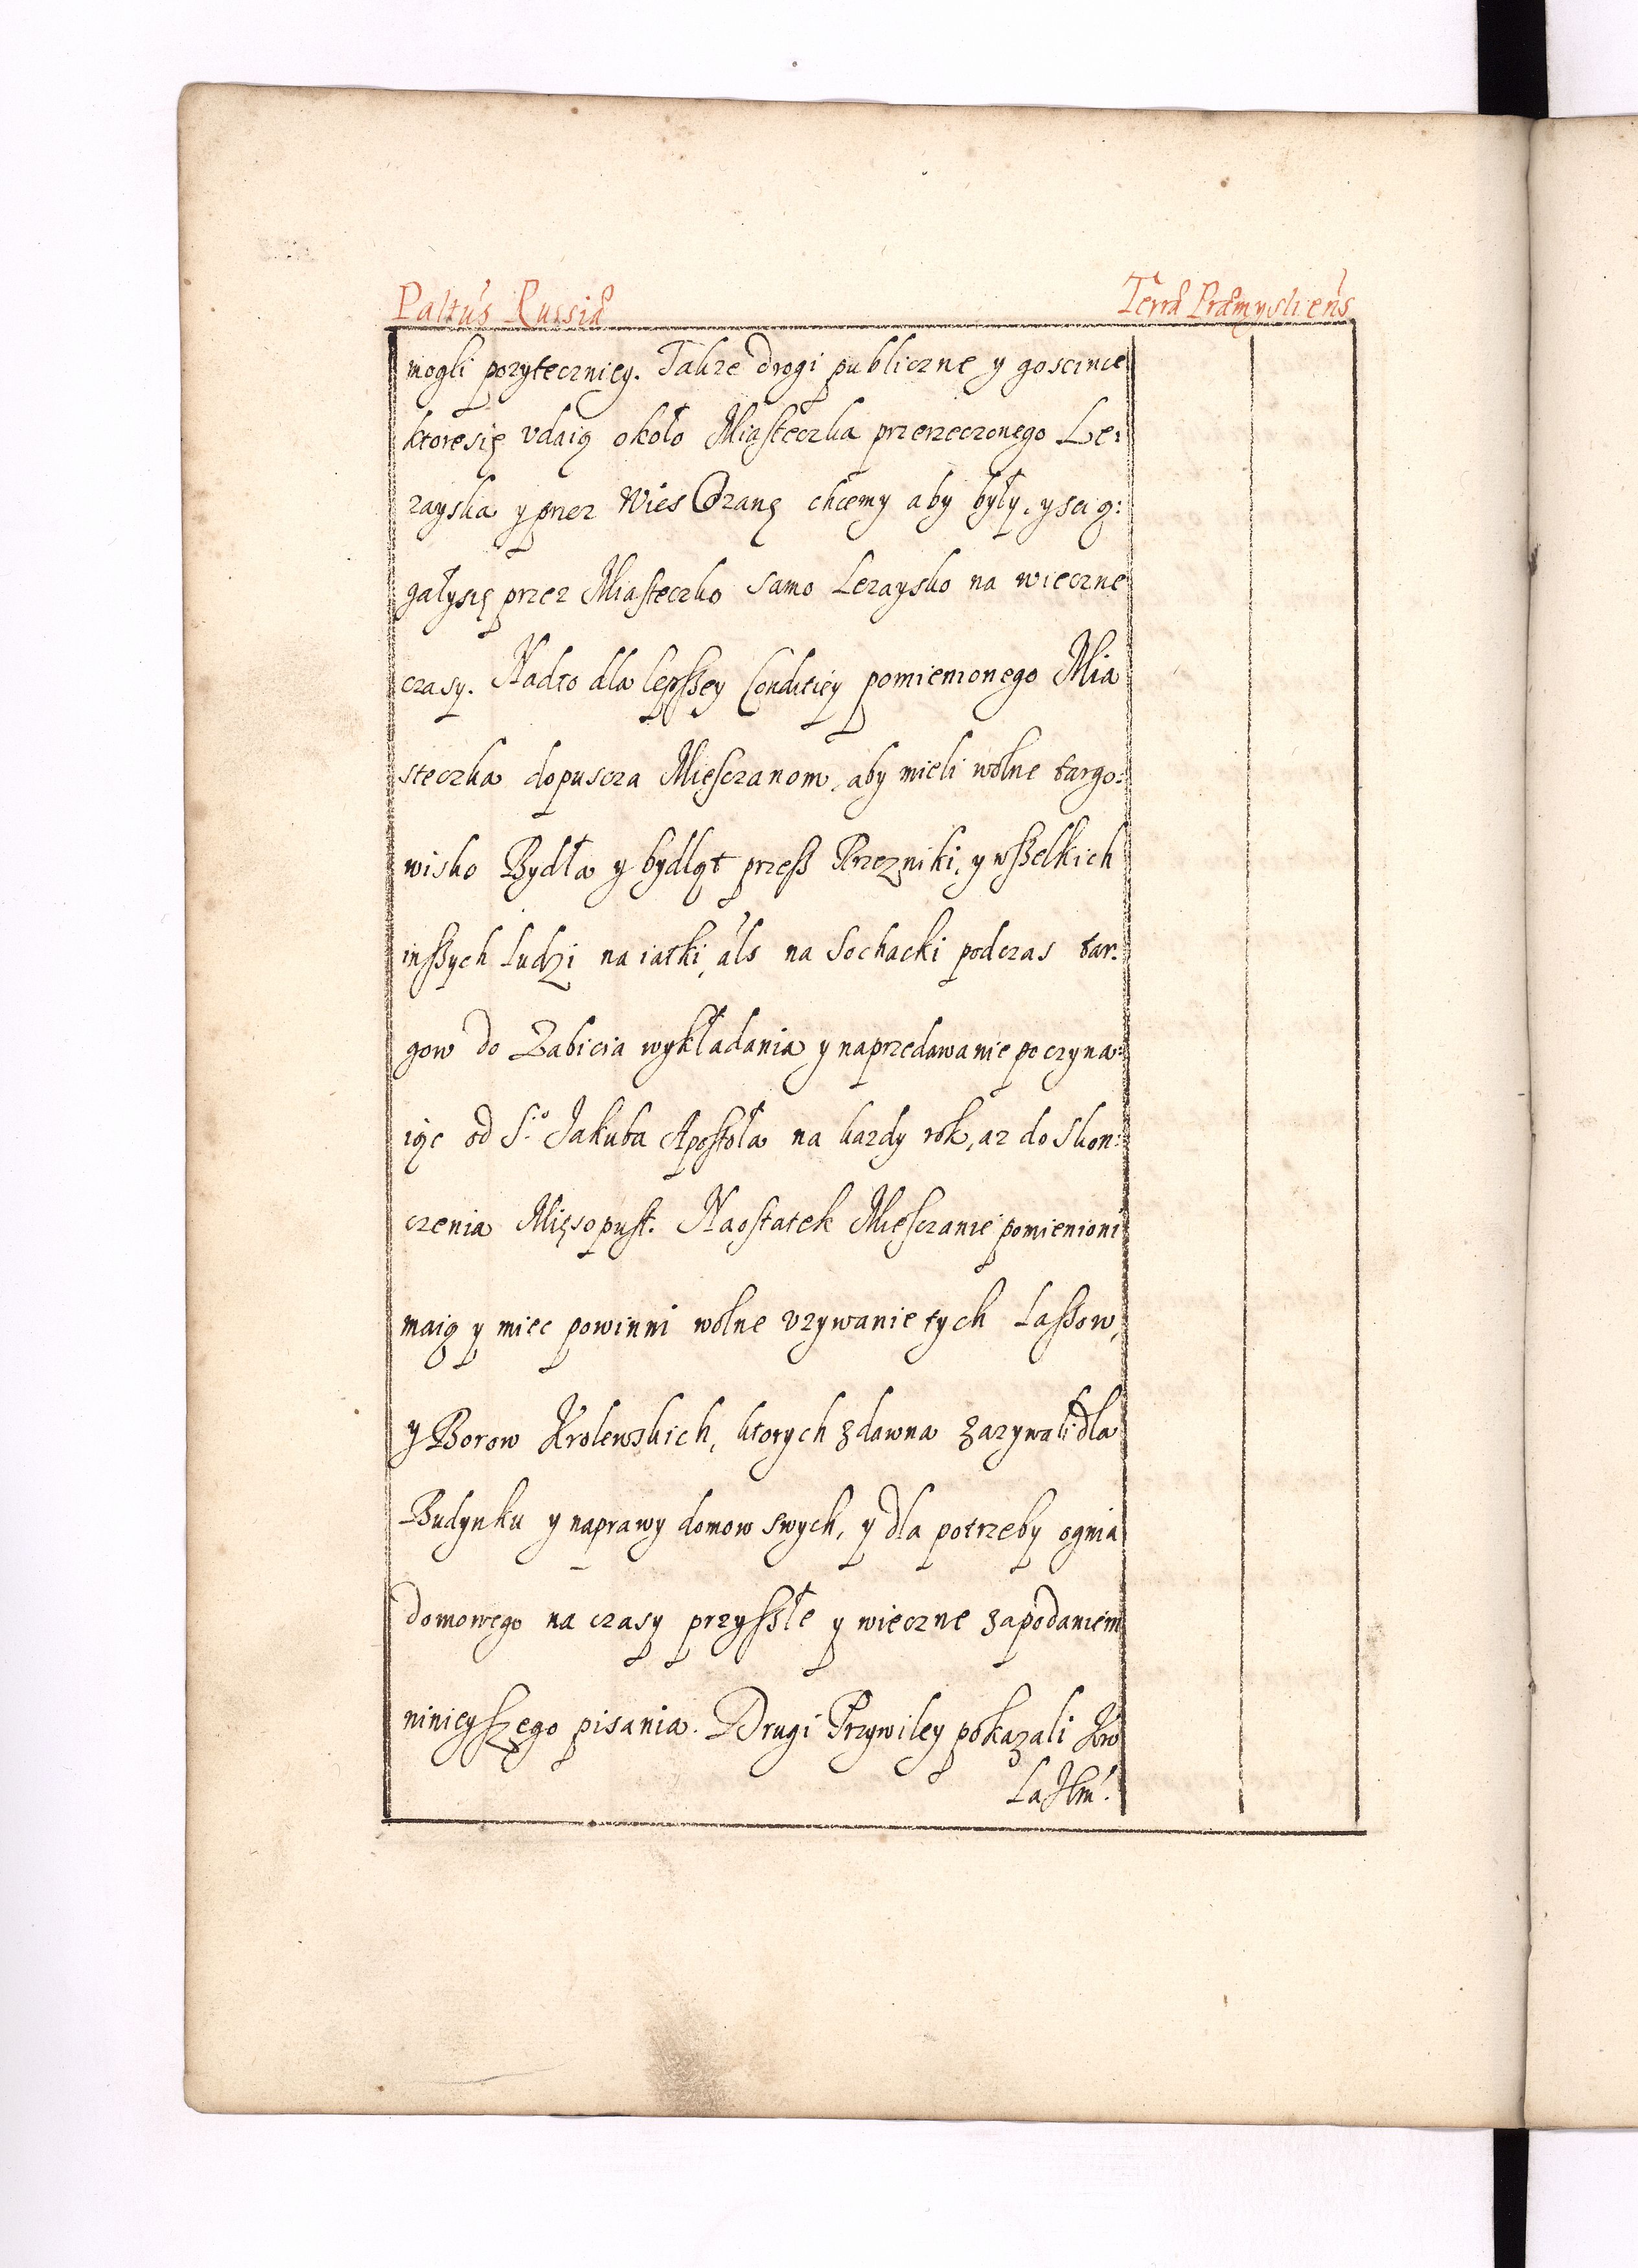 Paltus Russiæ
Terræ Præmysliens
mogli pozyteczniey. Takze drogi publiczne y goscince
ktore się vdaią około Miasteczka przerzeczonego Le:
zayska y przez Wies Ozanę chcemy aby były, y scią:
gały się przez Miasteczko samo Lezaysko na wieczne
czasy. Nadto dla lepßey Conditiey pomienionego Mia
steczka dopuscza Miesczanom, aby mieli wolne targo:
wisko Bydła y bydląt przeß Rzezniki, y wßelkich
inßych ludzi na iatki, als na Sochacki podczas tar:
gow do Zabicia wykładania y naprzedawanie poczyna:
iąc od S.º Jakuba Apostoła na kazdy rok, az do skon:
czenia Mięsopust. Naostatek Miesczanie pomienioni
maią y miec powinni wolne vzywanie tych Laßow,
y Borow Krolewskich, ktorych zdawna zazywali dla
Budynku y naprawy domow swych, y dla potrzeby ognia
domowego na czasy przyßłe y wieczne zapodaniem
ninieyszego pisania. Drugi Przywiley pokazali Kro